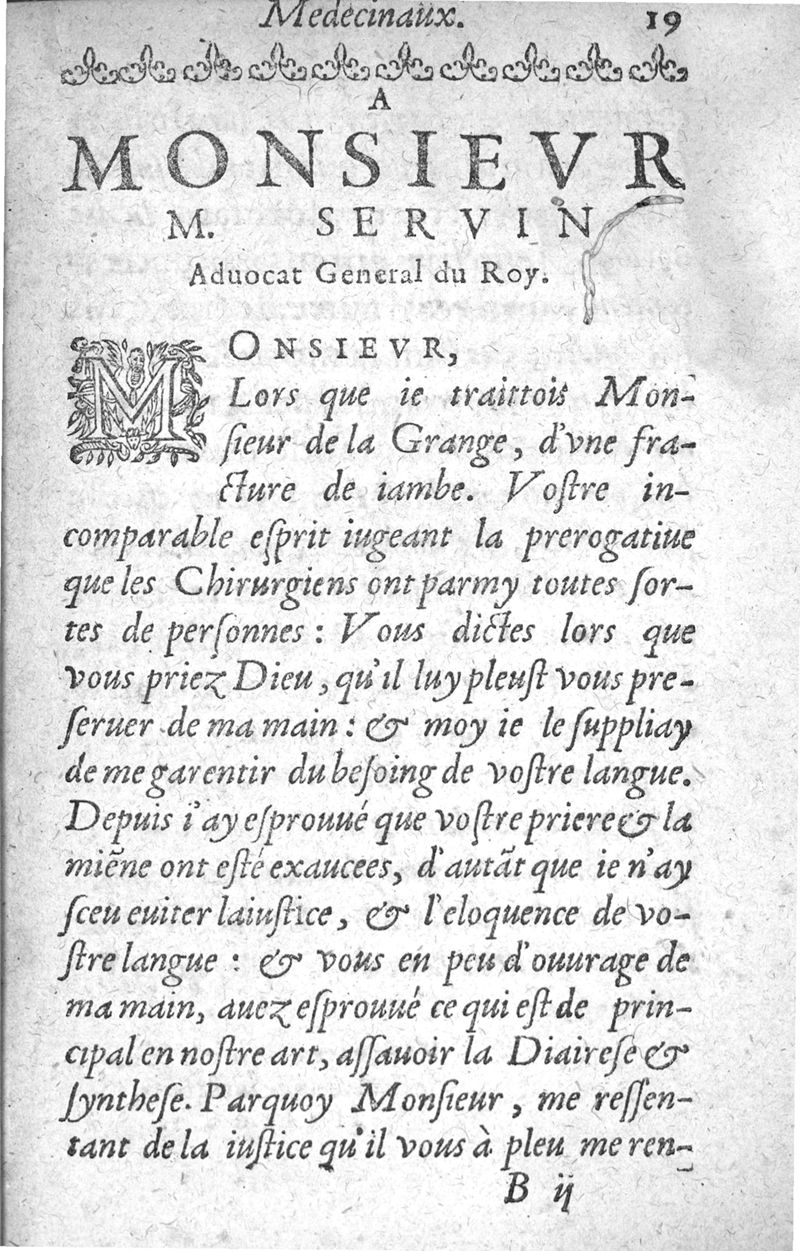 Medecinaux. 19
A
MONSIEVR
M. SERVIN
Aduocat General du Roy.
MONSIEVR,
Lors que ie traittois Mon-
ſieur de la Grange, d'vne fra-
cture de iambe. Voſtre in-
comparable eſprit iugeant la prerogatiue
que les Chirurgiens ont parmy toutes ſor-
tes de perſonnes : Vous dictes lors que
vous priez Dieu, qu'il luy pleuſt vous pre-
ſeruer de ma main : & moy ie le ſuppliay
de me garentir du beſoing de voſtre langue.
Depuis i'ay eſprouué que voſtre priere & la
miẽne ont eſté exaucees, d'autãt que ie n'ay
ſceu euiter la iuſtice, & l'eloquence de vo-
ſtre langue : & vous en peu d'ouurage de
ma main, auez eſprouué ce qui eſt de prin-
cipal en noſtre art, aſſauoir la Diaireſe &
ſyntheſe. Parquoy Monſieur, me reſſen-
tant de la iuſtice qu'il vous à pleu me ren-
B ij